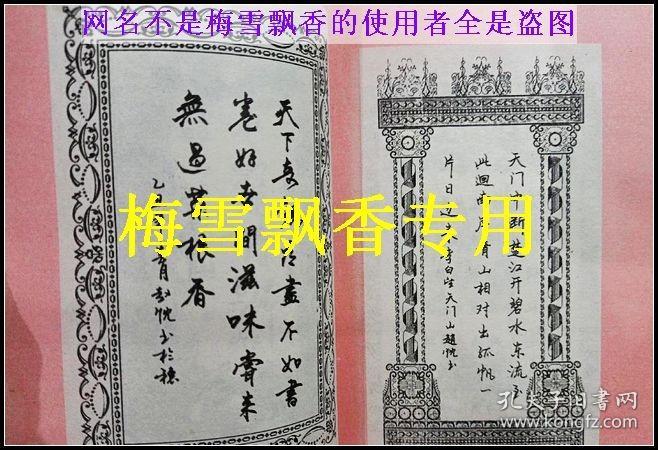 网名不是梅雪飘香的使用者全是盗图
天下 盡不如書
卷好 世間滋味嘗来
無過菜根香
乙 於穗
梅雪飘香专用
天门中断楚江开碧水东流至
此迴 有山相对出孤帆一
片日边来李白望天门山赵 书
孔夫子旧書网
www.kongfz.com